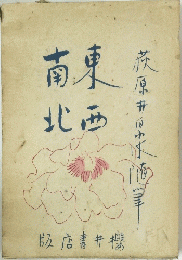 荻原井泉水随筆
東西
南北
桜井書店版